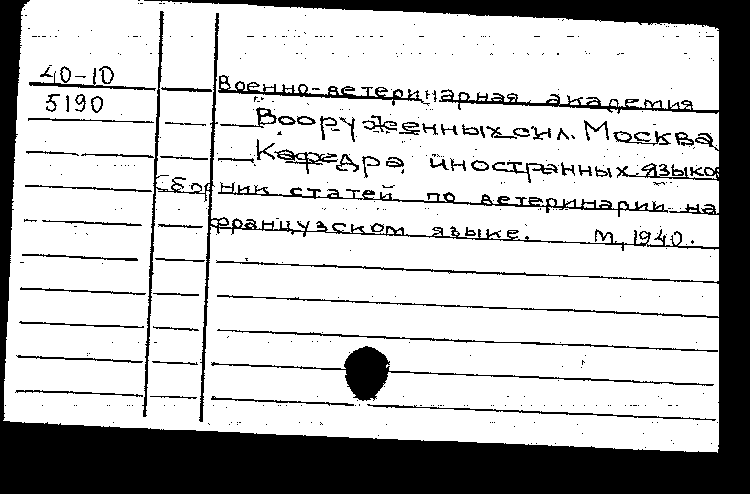 40-10
Военно-ветеринарная академия
5190
Вооруженных сил. Москва
Кафедра иностранных языко
Сборник статей по ветеринарии на
французском языке. М, 1940.